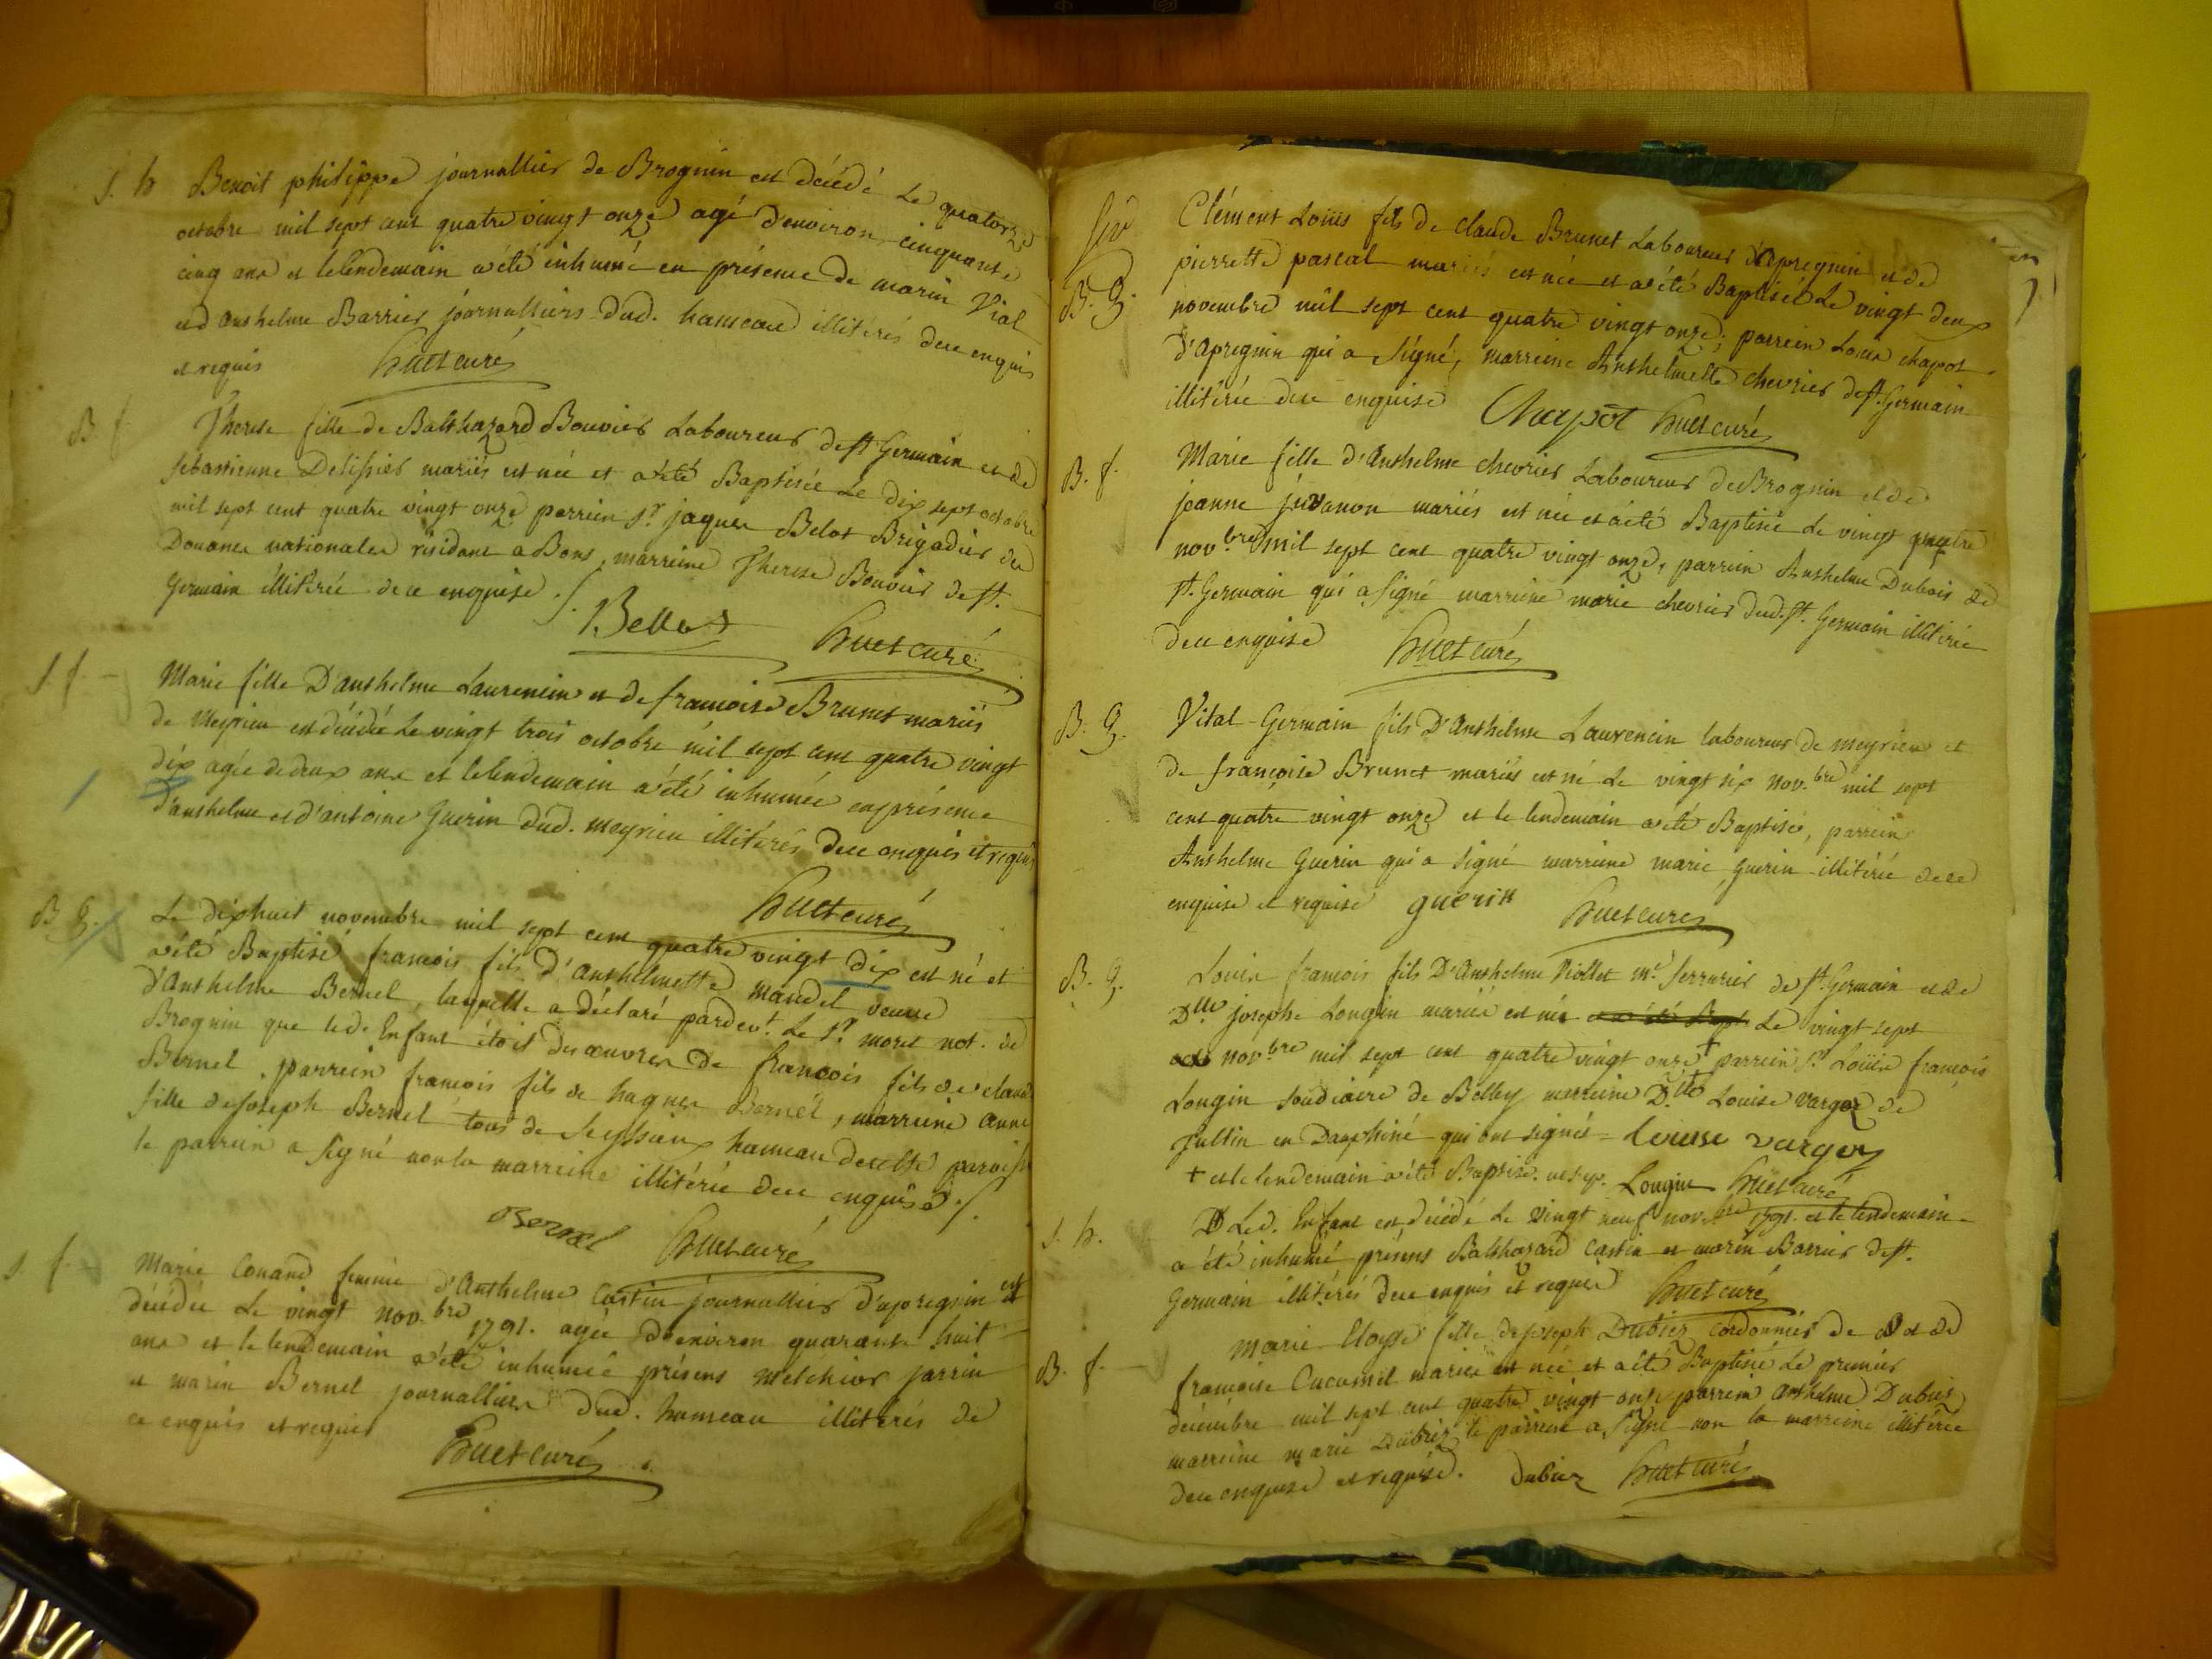 S. h Benoit philippe journallier de Brognin est décédé Le quatorze
octobre mil sept cent quatre vingt onze agé denviron cinquante
cinq ans et lelendemain a été inhumé en présence de marin Vial
et d'anthelme Barrier journalliers dud. hameau illitérés dece enquis
et requis huet curé
B f Therese fille de Balthazard Bouvier Laboureur de st Germain et de
sebastienne Delissier mariés est née et a été Baptisée Le dix sept octobre
mil sept cent quatre vingt onze parrein sr. jaques Belot Brigadier des
Douanes nationales résidant a Bons, marreine Therese Bouvier de st.
Germain illitérée de ce enquise ./.
Bellot huet curé
S. f. Marie fille D'anthelme Laurencin et de francoise Brunet mariés
de Meyrieu est décédée Le vingt trois octobre mil sept cent quatre vingt
dix agée de deux ans et lelendemain a été inhumée en présence
d'anthelme et d'antoine Guerin dud. meyrieu illitérés dece enquis et requis
huet curé
B G. Le dixhuit novembre mil sept cent quatre vingt dix est né et
a été Baptisé francois fils d'anthelmette mandel veuve
d'Anthelme Bernel, laquelle a déclaré pardevt. Le sr. moret not. de
Brognin que led. Enfant étoit des œuvres de francois fils de claude
Bernel, parrein francois fils de hugues Bernel, marreine anne
fille de joseph Bernel tous de Seyssieux hameau decette paroisse
le parrein a signé non la marreine illitérée dece enquise ./.
Bernel huet curé
S. f. Marie Conand femme d'Anthelme Castin journallier d'apregnin est
décédée Le vingt nov.bre 1791. agée denviron quarante huit
ans et le lendemain a été inhumée présens melchior jarrin
et marin Bernel journalliers dud. hameau illitérés de
ce enquis et requis
huet curé
Clément Loüis fils de claude Brunet Laboureur d'apregnin et de
B. G. pierrette pascal mariés est née et a été Baptisé Le vingt deux
novembre mil sept cent quatre vingt onze; parrein Louis chapot
d'apregnin qui a signé, marreine Anthelmette chevrier de st. Germain
illitérée dece enquise Chapot huet curé
B. f. Marie fille d'Anthelme chevrier Laboureur de Brognin et de
jeanne juvanon mariés est née et a été Baptisée Le vingt quatre
nov.bre mil sept cent quatre vingt onze, parrein Anthelme Dubois de
st. Germain qui a signé marreine marie chevrier dud. st. Germain illitérée
dece enquise huet curé
B. G. Vital-Germain fils D'Anthelme Laurencin laboureur de meyrieu et
de françoise Brunet mariés est né Le vingt six nov.bre mil sept
cent quatre vingt onze et le lendemain a été Baptisé, parrein
Anthelme Guerin qui a signé marreine marie Guerin illitérée dece
enquise et requise guerin huet curé
B. G. Louis francois fils D'Anthelme Niollet me. serrurier de st. Germain et de
Dlle josephe Longin mariés est née et a été Bapt. Le vingt sept
nov.bre mil sept cent quatre vingt onze + parrein sr. Loüis francois
Longin soudiacre de Belley marreine D.lle Louise vargoz de
jullin en Dauphiné qui ont signés = Louise vargoz
+ et le lendemain a été Baptisé. Longin huet curé
S. h. Led. Enfant est décédé Le vingt neuf nov.bre 1791. et le lendemain
a été inhumé présens Balthazard Castin et marin Barrier de st.
Germain illitérés dece enquis et requis huet curé
B. f. marie fille de joseph Dubiez cordonnier de et de
francoise Cucumel mariés est née et a été Baptisée Le premier
décembre mil sept cent quatre vingt onze parrein anthelme Dubiez
marreine marie Dubiez le parrein a signé non la marreine illitérée
dece enquise et requise. Dubiez huet curé